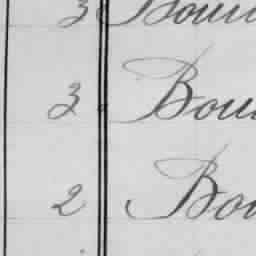 3 Bou
3 Bou
2 Bou